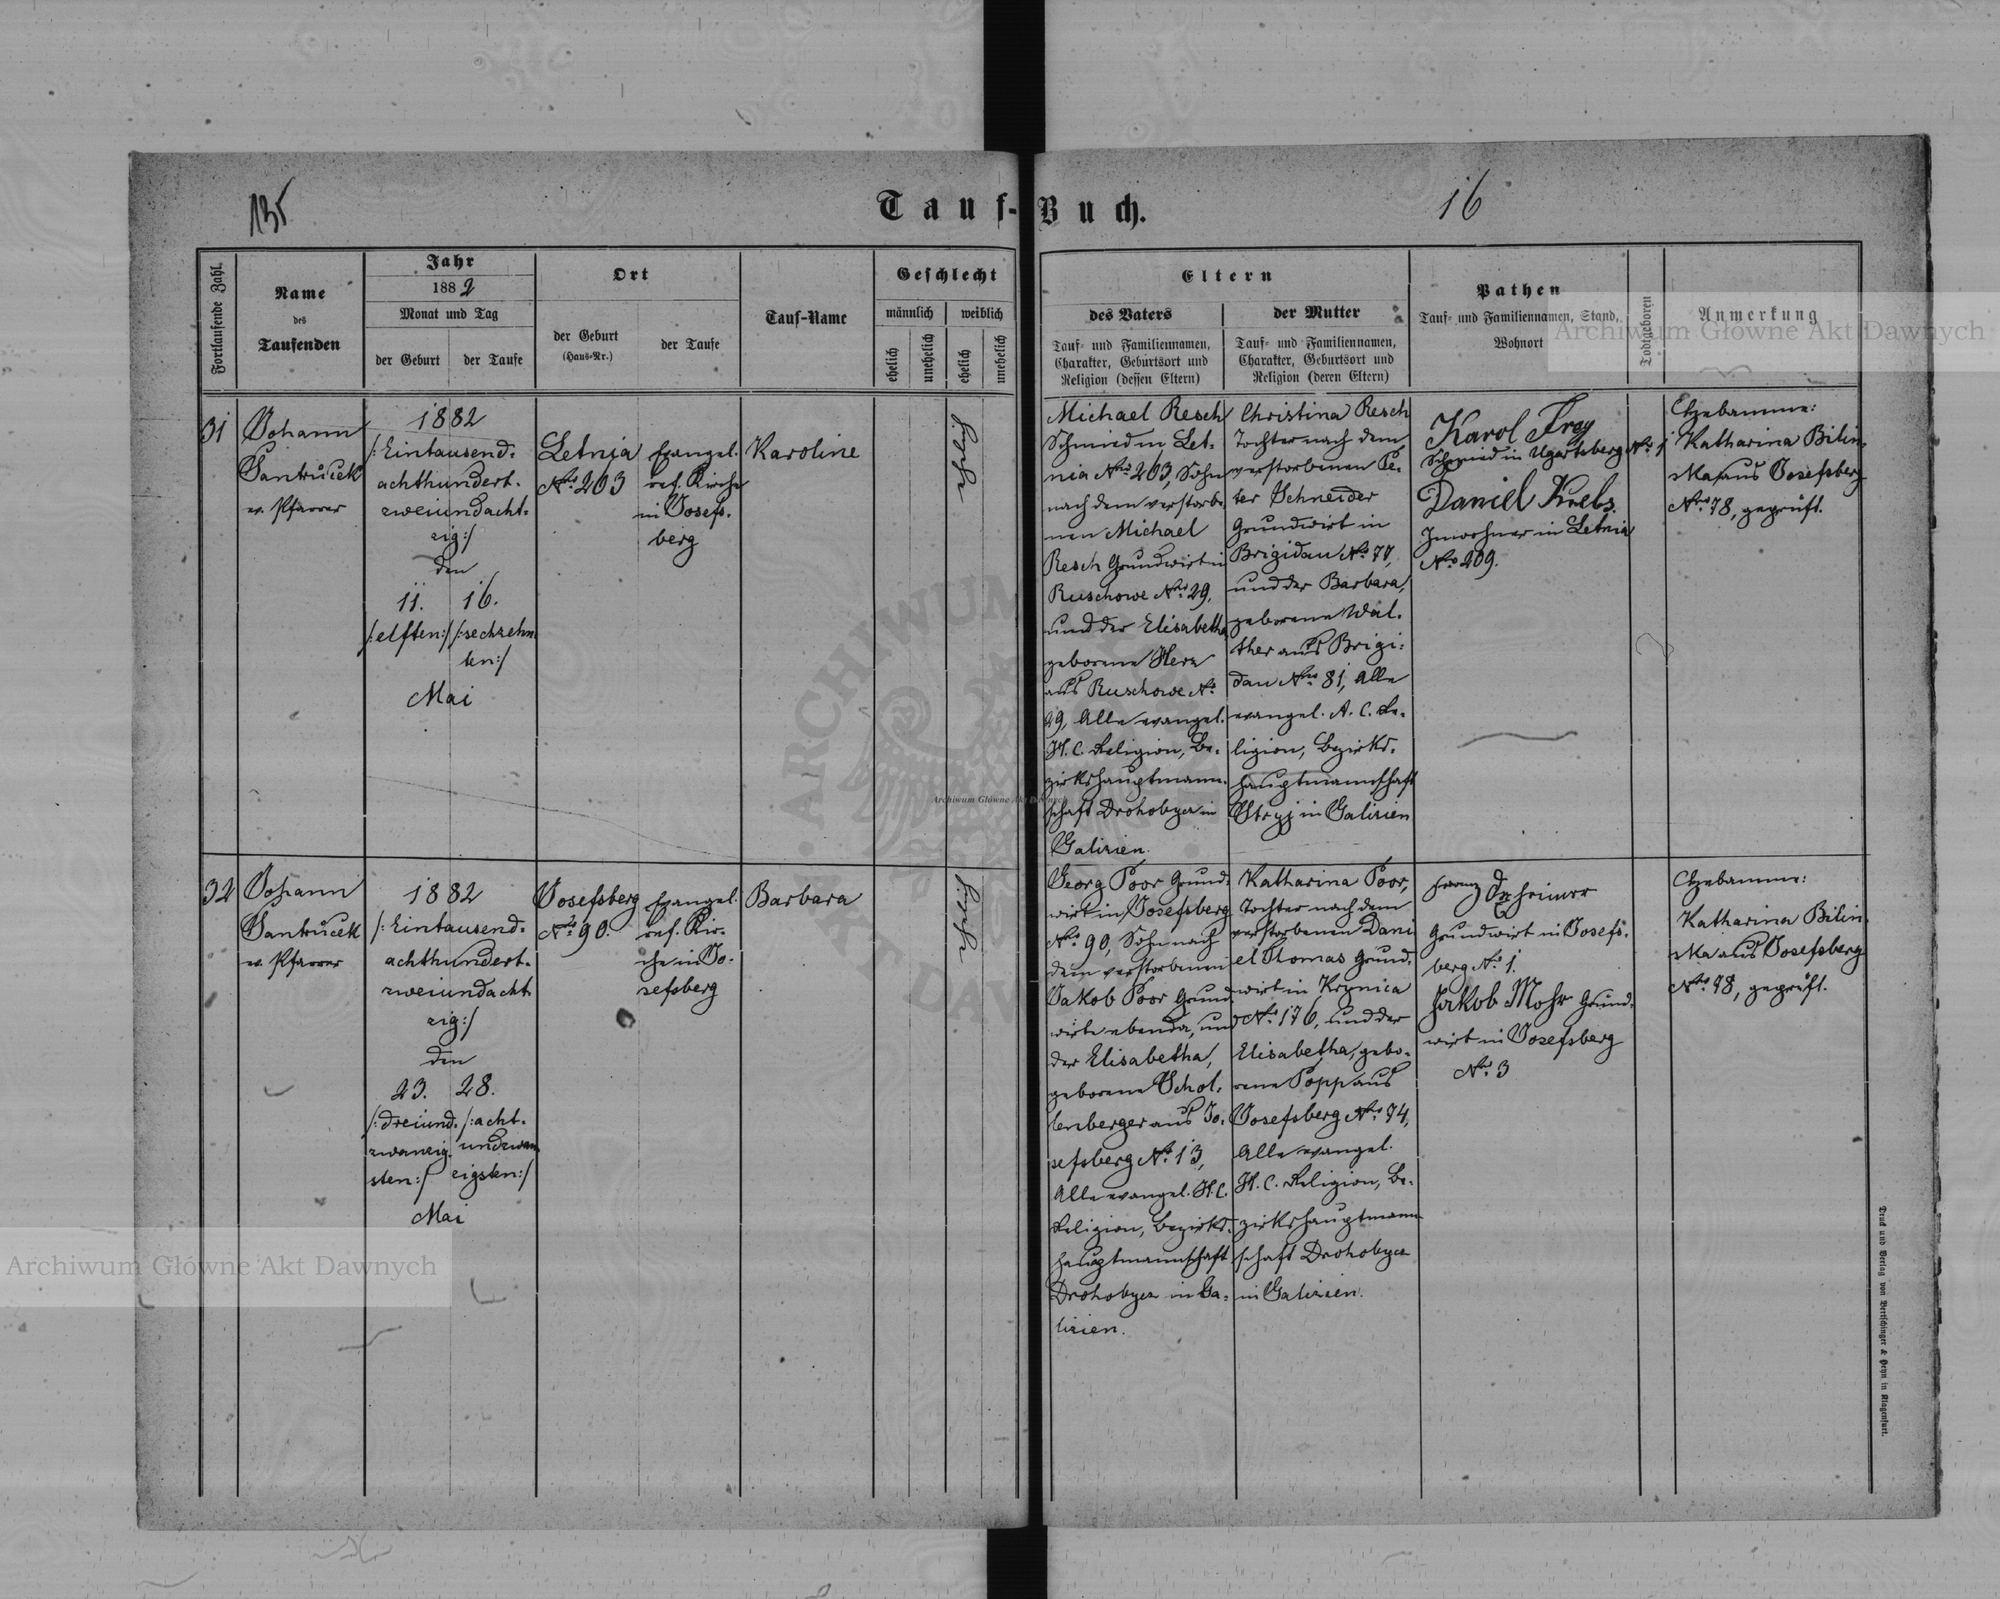 135
Tauf-Buch.
16
Fortlaufende Zahl.
Name
des
Taufenden
Jahr
1882
Monat und Tag
der Geburt
der Taufe
Ort
der Geburt
(Haus-Nr.)
der Taufe
Tauf-Name
Geschlecht
männlich
weiblich
ehelich
unehelich
ehelich
unehelich
Eltern
des Vaters
Tauf- und Familiennamen,
Charakter, Geburtsort und
Religion (dessen Eltern)
der Mutter
Tauf- und Familiennamen,
Charakter, Geburtsort und
Religion (deren Eltern)
Pathen
Tauf- und Familiennamen, Stand,
Wohnort
Todtgeboren
Anmerkung
31
Johann
Jantuček
ev. Pfarrer
1882
/:Eintausend-
achthundert-
zweiundacht-
zig:/
den
11. 16.
/:elften:/ /:sechzehn
ten:/
Mai
Letnia
Nro 203
Evangel.
ref. Kirche
in Josefs-
berg
Karoline
ehelich
Michael Resch
Schmied in Let-
nia Nro 203, Sohn
nach dem verstorbe-
nen Michael
Resch Grundwirt in
Ruschowe Nro 29,
und der Elisabetha
geborene Herz
aus Ruschowe No
29, Alle evangel.
H. C. Religion, Be-
zirkshauptmann-
schaft Drohobycz in
Galizien.
Christina Resch
Tochter nach dem
verstorbenen Pe-
ter Schneider
Grundwirt in
Brigidau No 77,
und der Barbara,
geborene Wal-
ther aus Brigi-
dau Nro 81, Alle
evangel. A. C. Re-
ligion, Bezirks-
hauptmannschaft
Stryj in Galizien
Karol Frey
Schmied in Ugartsberg No 1
Daniel Krebs
Inwohner in Letnia
Nro 209.
Hebamme:
Katharina Bilin-
ska aus Josefsberg
Nro 78, geprüft.
32
Johann
Jantuček
ev. Pfarrer
1882
/:Eintausend-
achthundert-
zweiundacht
zig:/
den
23. 28.
/:dreiund- /:acht-
zwanzig- undzwan
sten:/ zigsten:/
Mai
Josefsberg
No 90.
Evangel.
ref. Kir-
che in Jo-
sefsberg
Barbara
ehelich
Georg Poor Grund-
wirt in Josefsberg
Nro 90, Sohn nach
dem verstorbenen
Jakob Poor Grund
wirte ebenda, und
der Elisabetha,
geborene Schol-
lenberger aus Jo-
sefsberg No 13,
Alle evangel. H. C.
Religion, Bezirks-
hauptmannschaft
Drohobycz in Ga-
lizien.
Katharina Poor,
Tochter nach dem
verstorbenen Dani
el Thomas Grund-
wirt in Krynica
No 176, und der
Elisabetha, gebo-
rene Popp aus
Josefsberg Nro 74,
Alle evangel.
H. C. Religion, Be-
zirkshauptmann
schaft Drohobycz
in Galizien.
Franz
Grundwirt in Josefs-
berg No 1.
Jakob Mohr Grund-
wirt in Josefsberg
No 3
Hebamme:
Katharina Bilin-
ska aus Josefsberg
Nro 78, geprüft.
Druck und Verlag von Bertschinger & Heyn in Klagenfurt.
Archiwum Główne Akt Dawnych
Archiwum Główne Akt Dawnych
Archiwum Główne Akt Dawnych